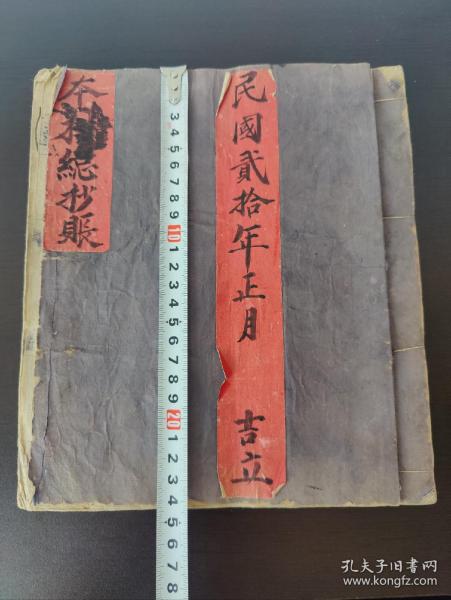 民國貳拾年正月 吉立
本 總抄賬
3 4 5 6 7 8 9 10 1 2 3 4 5 6 7 8 9 20 1 2 3 4 5 6 7 8
孔夫子旧书网
www.kongfz.com